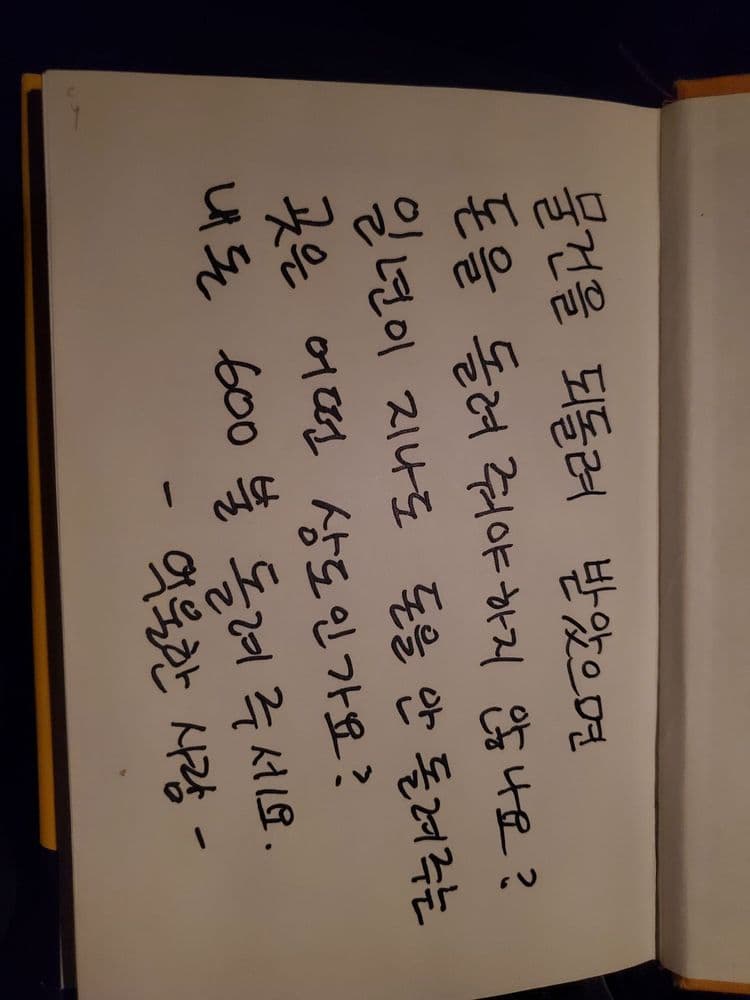 물건을 되돌려 받았으면
돈을 돌려 줘야하지 않나요?
일년이 지나도 돈을 안 돌려주는
곳은 어떤 상도인가요?
내돈 600불 돌려 주세요.
- 억울한 사람 -